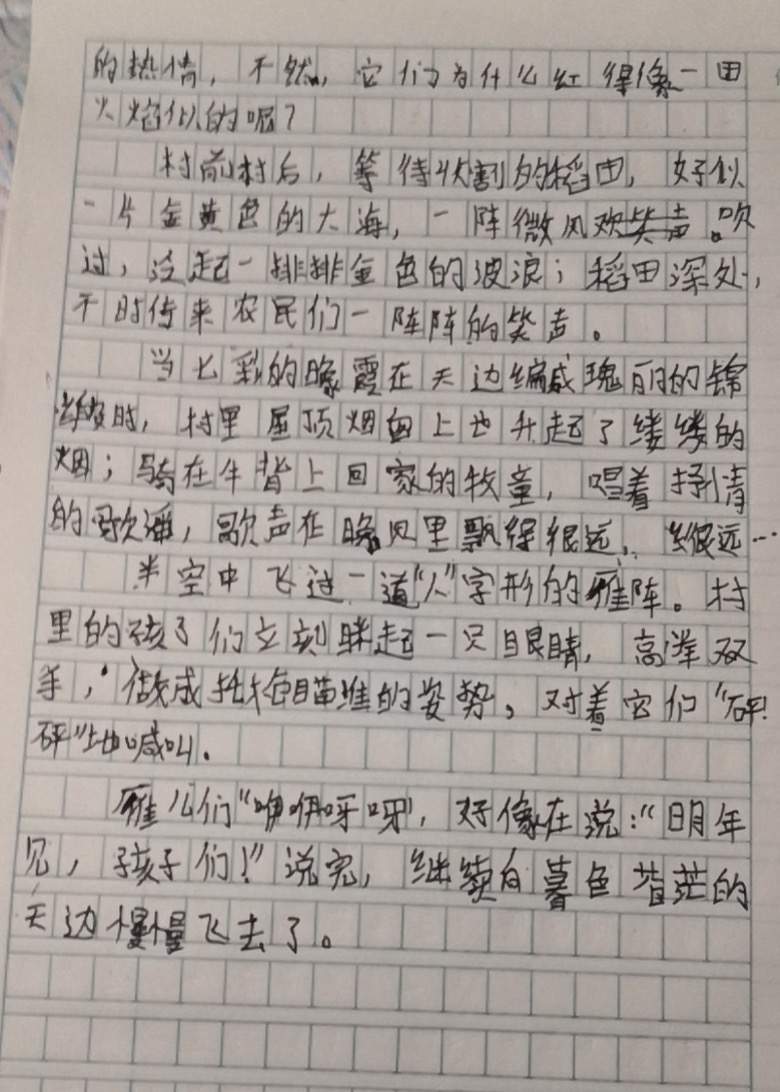 的热情，不然，它们为什么红得像一团
火焰似的呢？
村前村后，等待收割的稻田，好似
一片金黄色的大海，一阵微风欢笑声。吹
过，泛起一排排金色的波浪；稻田深处，
不时传来农民们一阵阵的笑声。
当七彩的晚霞在天边编成瑰丽的锦
缎时，村里屋顶烟囱上也升起了缕缕的
烟；骑在牛背上回家的牧童，唱着抒情
的歌谣，歌声在晚风里飘得很远，很远…
半空中飞过一道"人"字形的雁阵。村
里的孩子们立刻眯起一只眼睛，高举双
手，做成拉包瞄准的姿势，对着它们"砰！
砰"地喊叫。
雁儿们"咿咿呀呀"，好像在说："明年
见，孩子们！"说完，继续向暮色苍茫的
天边慢慢飞去了。